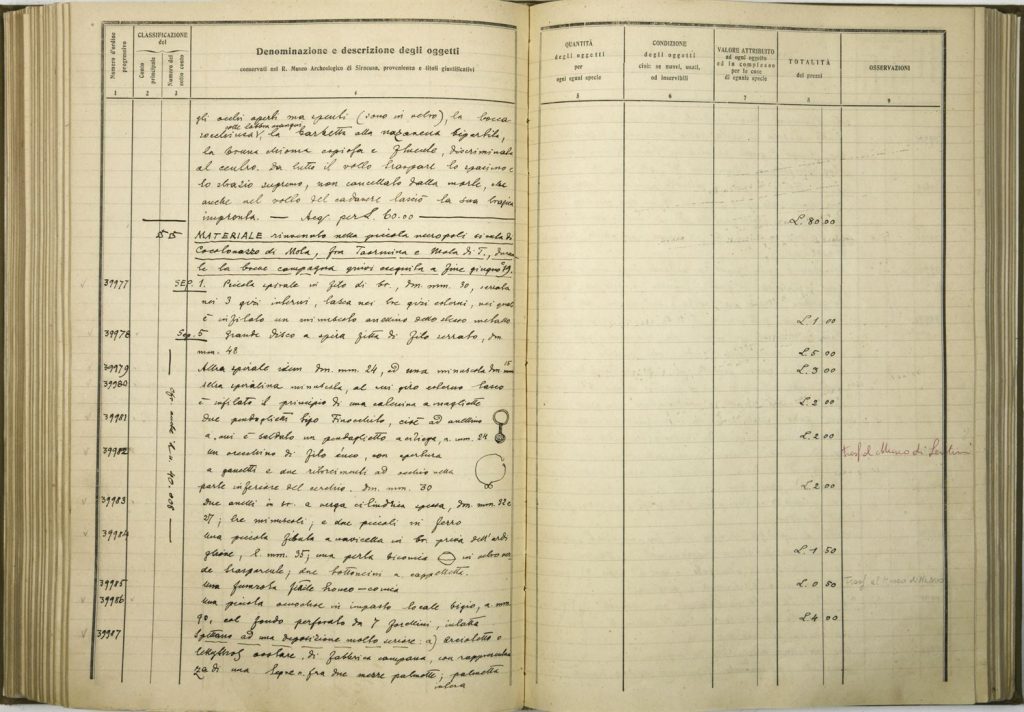 Numero d'ordine progressivo
CLASSIFICAZIONE del
Conto principale
Numero del sotto conto
Denominazione e descrizione degli oggetti
conservati nel R. Museo Archeologico di Siracusa, provenienza e titoli giustificativi
1 2 3 4
gli occhi aperti ma spenti (sono in vetro), la bocca
la barbetta alla nazarena bipartita,
la chioma copiosa e fluente, discriminata
al centro. Da tutto il volto traspare lo spasimo e
lo strazio supremo, non cancellato dalla morte, che
anche nel volto del cadavere lasciò la sua tragica
impronta. — Acq. per £. 60.00 —
55 MATERIALE rinvenuto nella piccola necropoli sicula di
Cocolonazzo di Mola, fra Taormina e Mola di T.,
le la breve campagna quivi eseguita a fine giugno 19.
39977 SEP. 1. Piccola spirale in filo di br., dm. mm. 30, serrata
nei 3 giri interni, lasca nei tre giri esterni, nei quali
è infilato un minuscolo anellino dello stesso metallo
39978 Sep. 5 Grande disco a spira fitta di filo serrato, dm
mm. 48
39979 Altra spirale idem dm. mm. 24, ed una minuscola dm. mm 15
39980 altra spiralina minuscola, al cui giro esterno lasco
è infilato il principio di una catenina a magliette
39981 due pendaglietti tipo Finocchito, cioè ad anellino
a cui è saldato un pendaglietto a ciliega, a. mm. 24
39982 un orecchino di filo eneo, con apertura
a gancetti e due ritorcimenti ad occhio nella
parte inferiore del cerchio. dm. mm. 30
39983 due anelli in br. a verga cilindrica spessa, dm. mm. 32 e
27; tre minuscoli; e due piccoli in ferro
39984 una piccola fibula a navicella in br. priva dell'ardi
glione, l. mm. 35; una perla biconica in vetro ver
de trasparente; due bottoncini a cappelletto.
39985 una fusarola fittile tronco-conica
39986 una piccola oenochoe in impasto locale bigio, a. mm.
90, col fondo perforato da 7 forellini, intatta
39987 Spettano ad una deposizione molto seriore: a)
lekythos di fabbrica campana, con rappresentan
za di una fra due mezze palmette; palmetta
intera
QUANTITÀ degli oggetti per ogni eguali specie
CONDIZIONE degli oggetti cioè: se nuovi, usati, od inservibili
VALORE ATTRIBUITO ad ogni oggetto od in complesso per le cose di eguale specie
TOTALITÀ dei prezzi
OSSERVAZIONI
5 6 7 8 9
£. 80 00
£. 1 00
£. 5 00
£. 3 00
£. 2 00
£. 2 00
trasf. al Museo di Lentini
£. 2 00
£. 1 50
£. 0 50 Trasf. al Museo di Naxos
£. 4 00